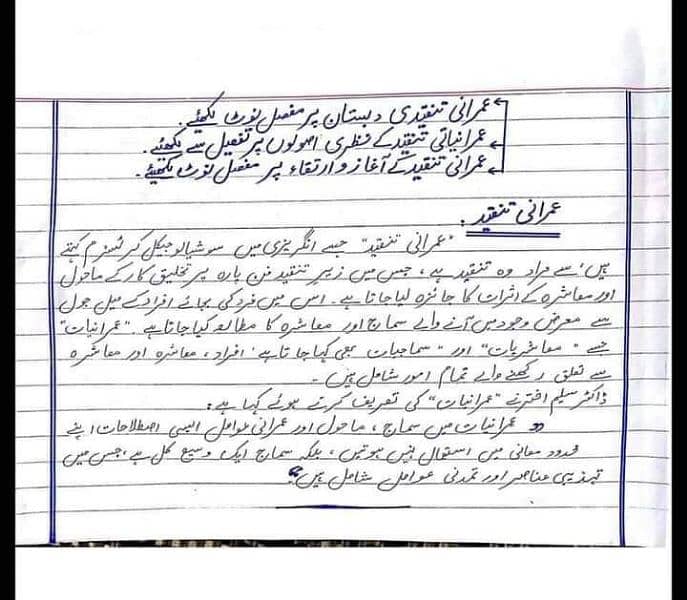 عمرانی تنقیدی دبستان پر مفصل نوٹ لکھئے۔
عمرانیاتی تنقید کے فطری اصولوں پر تفصیل سے لکھئے۔
عمرانی تنقید کے آغاز و ارتقاء پر مفصل نوٹ لکھیئے۔
عمرانی تنقید:
"عمرانی تنقید" جسے انگریزی میں سوشیالوجیکل کرٹسزم کہتے
ہیں، سے مراد وہ تنقید ہے، جس میں زیرِ تنقید فن پارہ پر تخلیق کار کے ماحول
اور معاشرہ کے اثرات کا جائزہ لیا جاتا ہے۔ اس میں فرد کی بجائے افراد کے میل جول
سے معرض وجود میں آنے والے سماج اور معاشرہ کا مطالعہ کیا جاتا ہے۔ "عمرانیات"
جسے "معاشریات" اور "سماجیات بھی کہا جاتا ہے، افراد، معاشرہ اور معاشرہ
سے تعلق رکھنے والے تمام امور شامل ہیں۔
ڈاکٹر سلیم اختر نے "عمرانیات" کی تعریف کرتے ہوئے کہا ہے:
"عمرانیات میں سماج، ماحول اور عمرانی عوامل ایسی اصطلاحات اپنے
محدود معانی میں استعمال نہیں ہوتیں، بلکہ سماج ایک وسیع کل ہے، جس میں
تہذیبی عناصر اور تمدنی عوامل شامل ہیں"